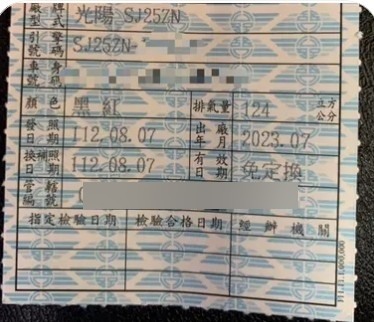 廠牌型式 光陽 SJ25ZN
引擎號碼 SJ25ZN-
車身號碼
顏色 黑紅 排氣量 124 立方公分
發照日期 112.08.07 出廠年月 2023.07
換補照日期 112.08.07 有效日期 免定換
管轄編號
指定檢驗日期 檢驗合格日期 經辦機關